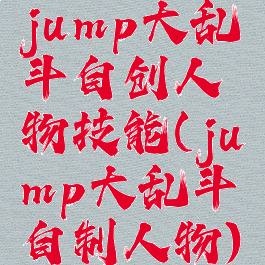 jump大乱
斗自创人
物技能(ju
mp大乱斗
自制人物)